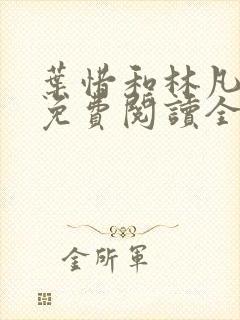 葉惜和林凡
免費閱讀全
金所軍